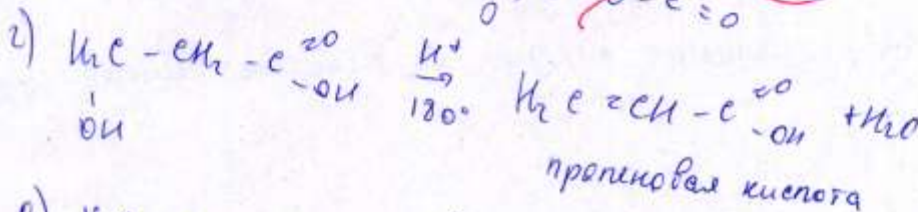 г) H₂C - CH₂ - C =O -OH H⁺ → 180° H₂C = CH - C =O -OH + H₂O
OH
пропеновая кислота